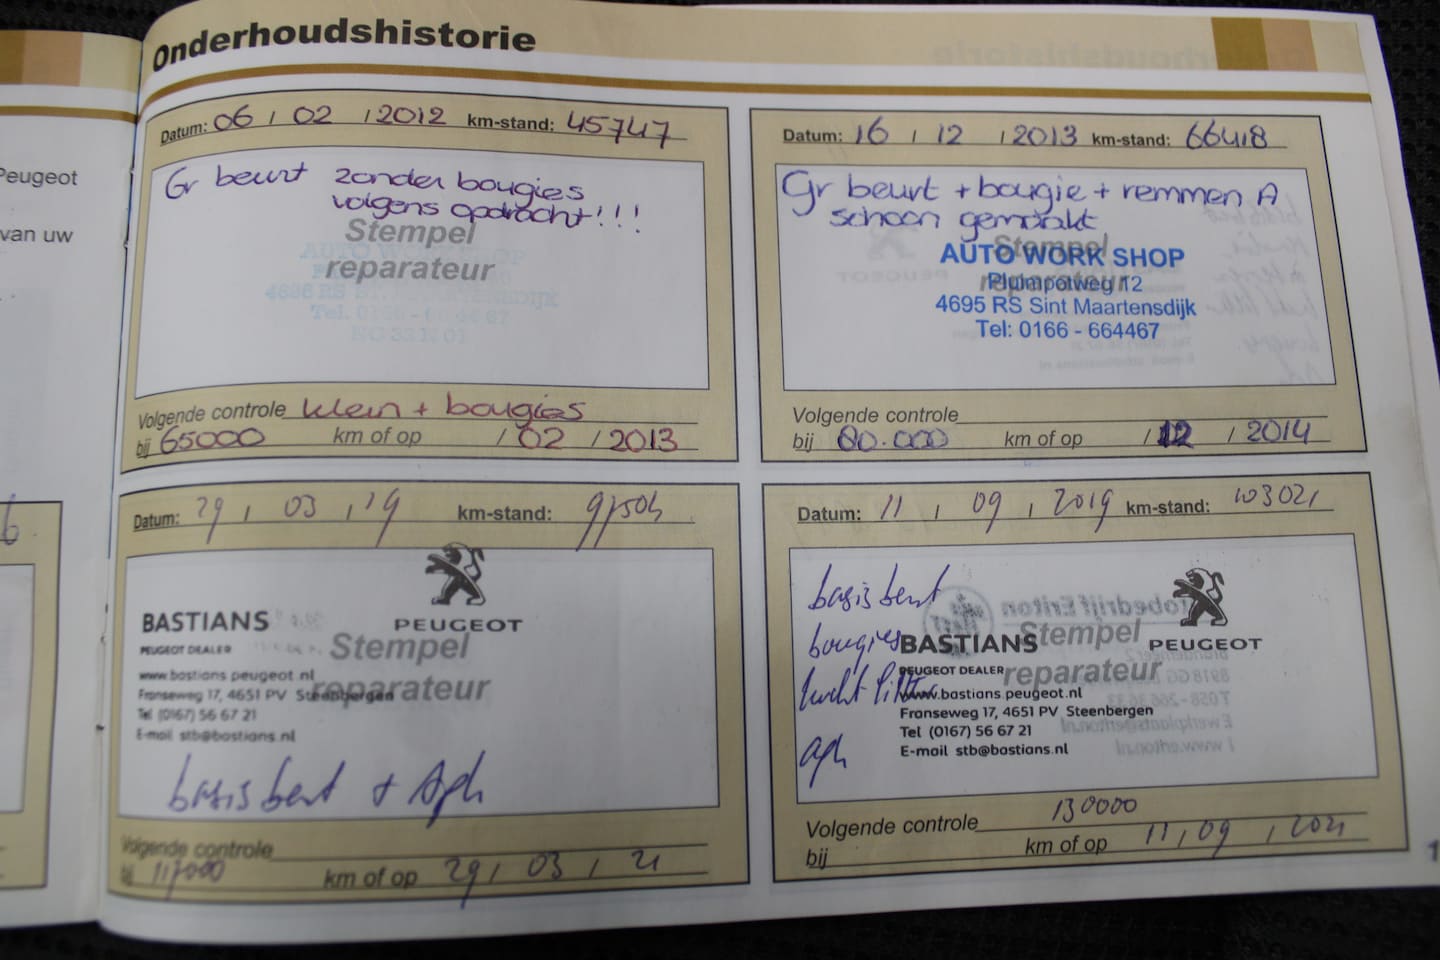 Onderhoudshistorie
Peugeot
van uw
Datum: 06 / 02 / 2012 km-stand: 45747
Gr beurt zonder bougies
volgens opdracht!!!
Stempel
reparateur
AUTO WORK SHOP
4695 RS ST. MAARTENSDIJK
Tel. 0166 - 66 44 67
Volgende controle klein + bougies
bij 65000 km of op / 02 / 2013
Datum: 16 / 12 / 2013 km-stand: 66418
Gr beurt + bougie + remmen A
schoon gemaakt
Stempel
reparateur
AUTO WORK SHOP
Plumpotweg 12
4695 RS Sint Maartensdijk
Tel: 0166 - 664467
Volgende controle
bij 80.000 km of op / 12 / 2014
Datum: 29 / 03 / 19 km-stand:
PEUGEOT
BASTIANS
PEUGEOT DEALER
Stempel
reparateur
www.bastians.peugeot.nl
Franseweg 17, 4651 PV Steenbergen
Tel (0167) 56 67 21
E-mail stb@bastians.nl
basis beurt + Apk
Volgende controle
bij 117000 km of op 29 / 03 / 21
Datum: 11 / 09 / 2019 km-stand: 103021
basis beurt
bougies
lucht filter
apk
PEUGEOT
BASTIANS
PEUGEOT DEALER
Stempel
reparateur
www.bastians.peugeot.nl
Franseweg 17, 4651 PV Steenbergen
Tel (0167) 56 67 21
E-mail stb@bastians.nl
Volgende controle 130000
bij km of op 11 / 09 / 2021